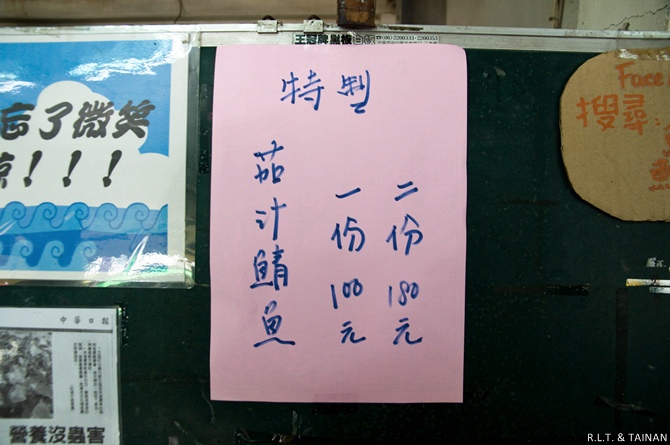 王冠牌黑板
(06)2200333-2200353
忘了微笑
!!!
特製
茄汁鯖魚
一份100元
二份180元
Face
搜尋:
中華日報
營養沒蟲害
R.L.T. & TAINAN